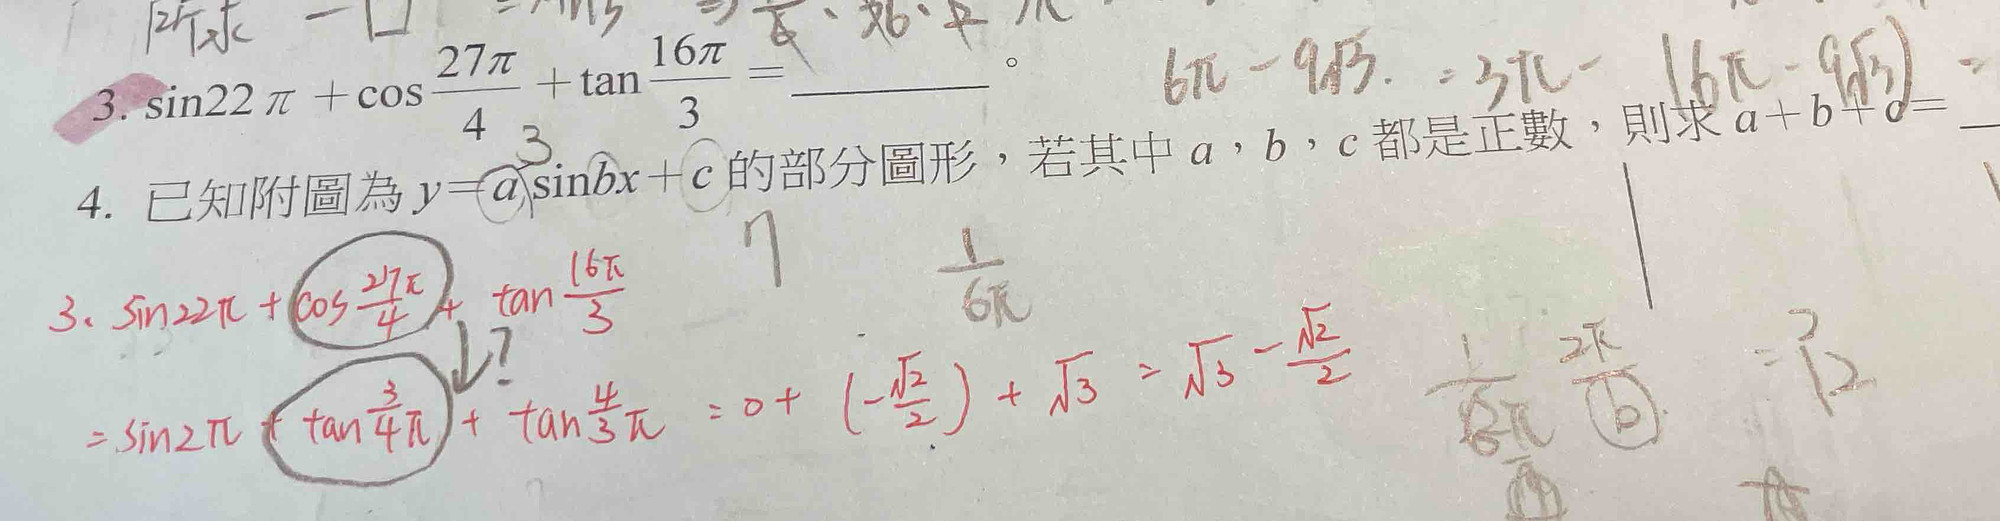 所求
3. sin22π + cos 27π/4 + tan 16π/3 = ______。
6π - 9√3 . = 3π - (6π - 9√3) =
3
4. 已知附圖為 y = a sinbx + c 的部分圖形，若其中 a，b，c 都是正數，則求 a + b + c = __
7
1/6π
3. sin22π + cos 27π/4 + tan 16π/3
?
= sin2π + tan 3/4 π + tan 4/3 π = 0 + (-√2/2) + √3 = √3 - √2/2
2π/b